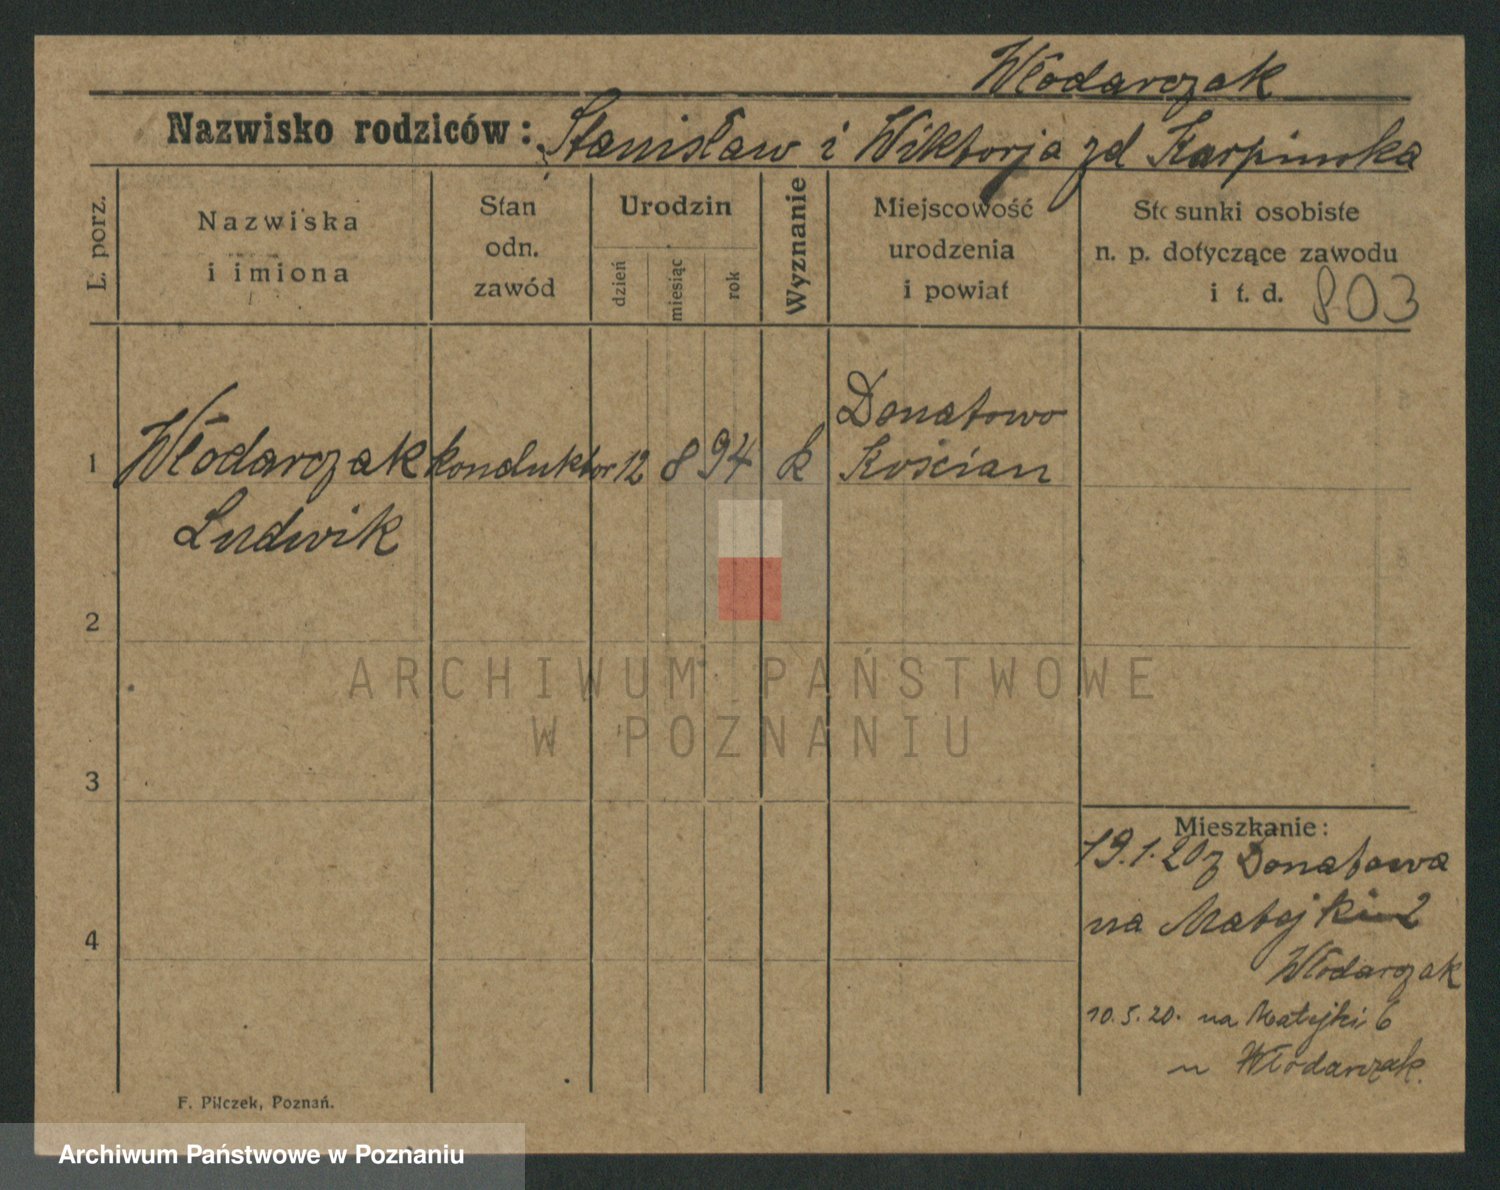 Włodarczak
Nazwisko rodziców: Stanisław i Wiktorja zd Karpinska
L. porz.
Nazwiska
i imiona
Stan
odn.
zawód
Urodzin
dzień
miesiąc
rok
Wyznanie
Miejscowość
urodzenia
i powiat
Stosunki osobiste
n. p. dotyczące zawodu
i t. d. 803
1 Włodarczak konduktor 12 8 94 k Donatowo
Kościan
Ludwik
2
3
4
ARCHIWUM PAŃSTWOWE
W POZNANIU
Mieszkanie:
19.1.20 z Donatowa
na Matejki 2
Włodarczak
10.5.20. na Matejki 6
u Włodarczak.
F. Pilczek, Poznań.
Archiwum Państwowe w Poznaniu